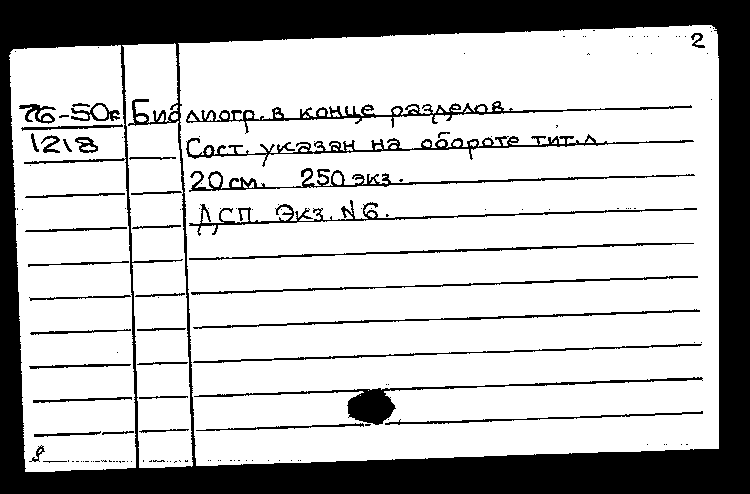 2
76-50к Библиогр. в конце разделов.
1218 Сост. указан на обороте тит. л.
20 см. 250 экз.
ДСП. Экз. N 6.